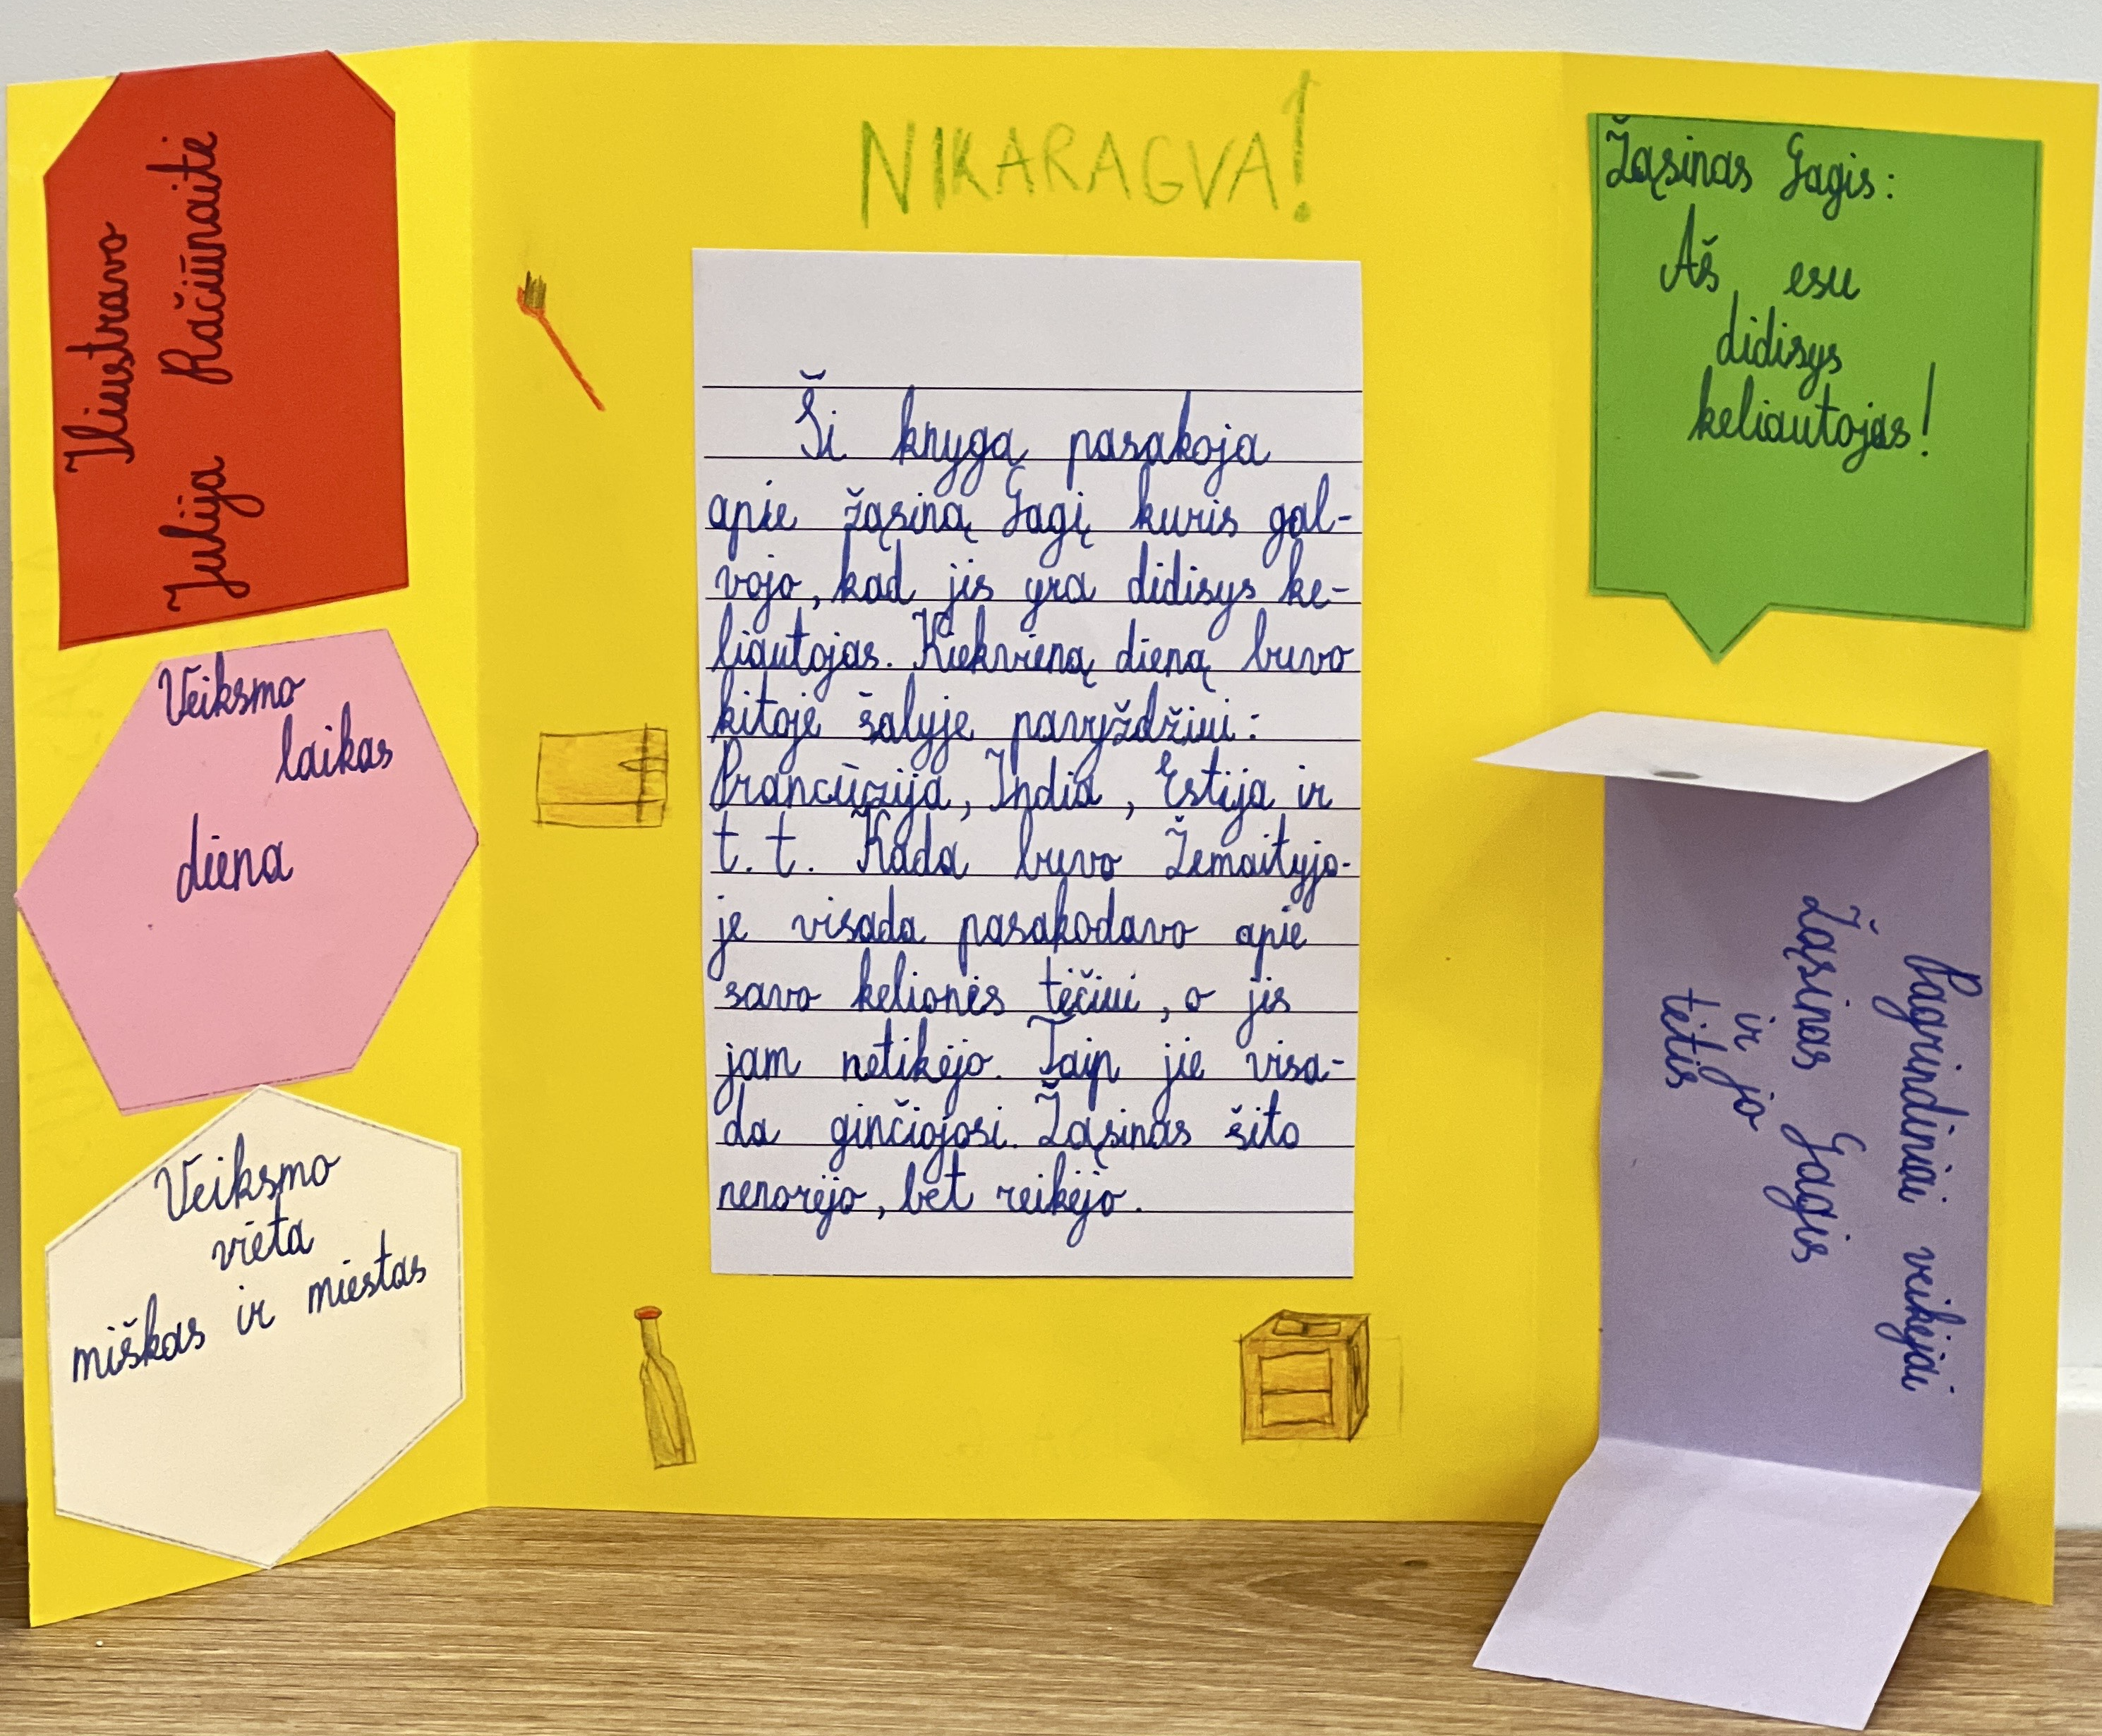 Iliustravo
Julija Račiūnaitė
Veiksmo
laikas
diena
Veiksmo
vieta
miškas ir miestas
NIKARAGVA!
Ši knygą pasakoja
apie žąsiną Gagį kuris gal-
vojo, kad jis yra didisys ke-
liautojas. Kiekvieną dieną buvo
kitoje šalyje pavyždžiui:
Prancūzija, India, Estija ir
t. t. Kada buvo Žemaityjo-
je visada pasakodavo apie
savo kelionės tėčiui, o jis
jam netikėjo. Taip jie visa-
da ginčiojosi. Žąsinas šito
nenorėjo, bet reikėjo.
Žąsinas Gagis:
Aš esu
didisys
keliautojas!
Pagrindiniai veikėjai
Žąsinas Gagis
ir jo
tėtis